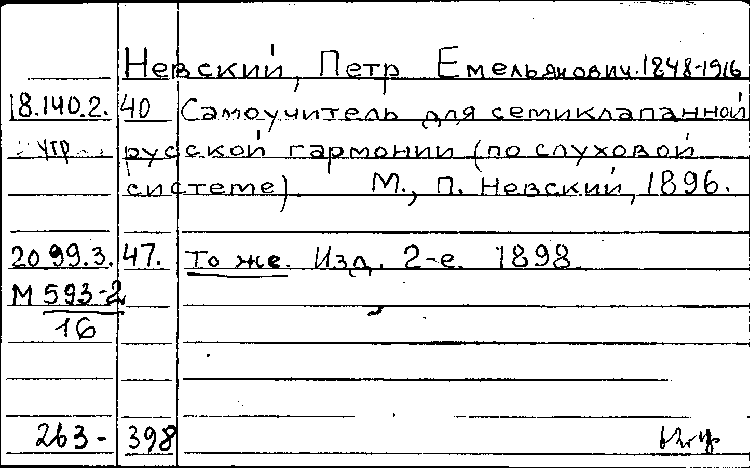 Невский, Петр Емельянович. 1848-1916
18.140.2.40 Самоучитель для семиклапанной
утр русской гармонии (по слуховой
системе) М., П. Невский, 1896.
20 99.3.47. То же. Изд. 2-е. 1898
М 593-2
16
263-398